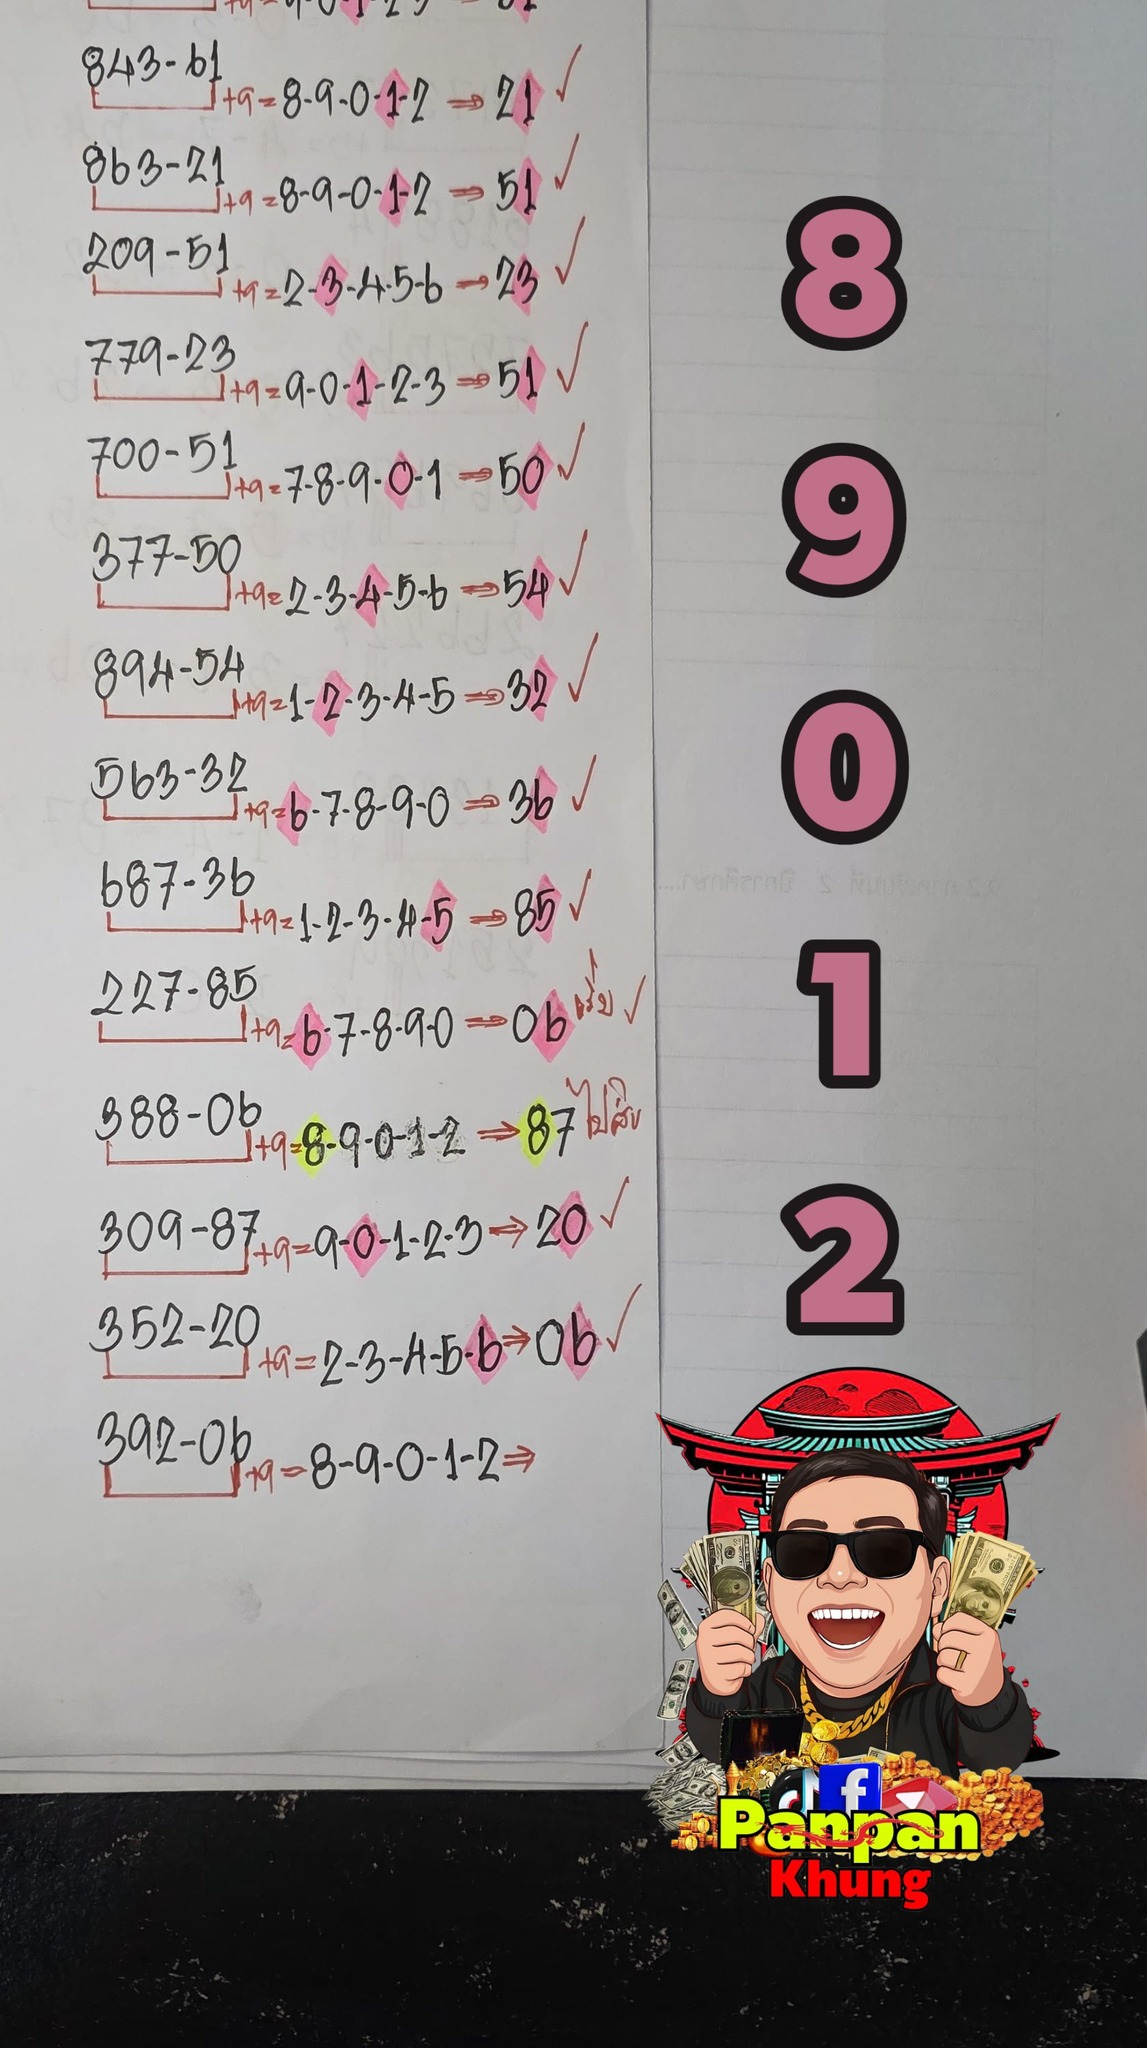 843-61
+9=8-9-0-1-2 ⇒ 21 ✓
863-21
+9=8-9-0-1-2 ⇒ 51 ✓
209-51
+9=2-3-4-5-6 ⇒ 23 ✓
779-23
+9=9-0-1-2-3 ⇒ 51 ✓
700-51
+9=7-8-9-0-1 ⇒ 50 ✓
377-50
+9=2-3-4-5-6 ⇒ 54 ✓
894-54
+9=1-2-3-4-5 ⇒ 32 ✓
563-32
+9=6-7-8-9-0 ⇒ 36 ✓
687-36
+9=1-2-3-4-5 ⇒ 85 ✓
227-85
+9=6-7-8-9-0 ⇒ 06 ✓
388-06
+9=8-9-0-1-2 ⇒ 87
309-87
+9=9-0-1-2-3 ⇒ 20 ✓
352-20
+9=2-3-4-5-6 ⇒ 06 ✓
392-06
+9=8-9-0-1-2 ⇒
8
9
0
1
2
Panpan
Khung